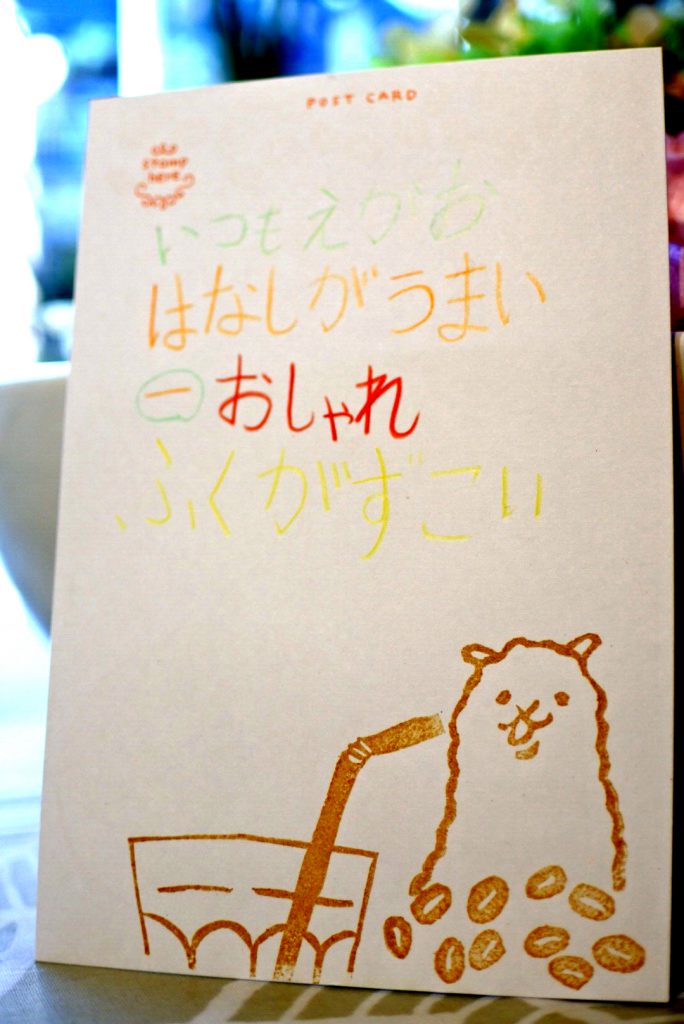 POST CARD
stamp
here
いつもえがお
はなしがうまい
一おしゃれ
ふくがずこい